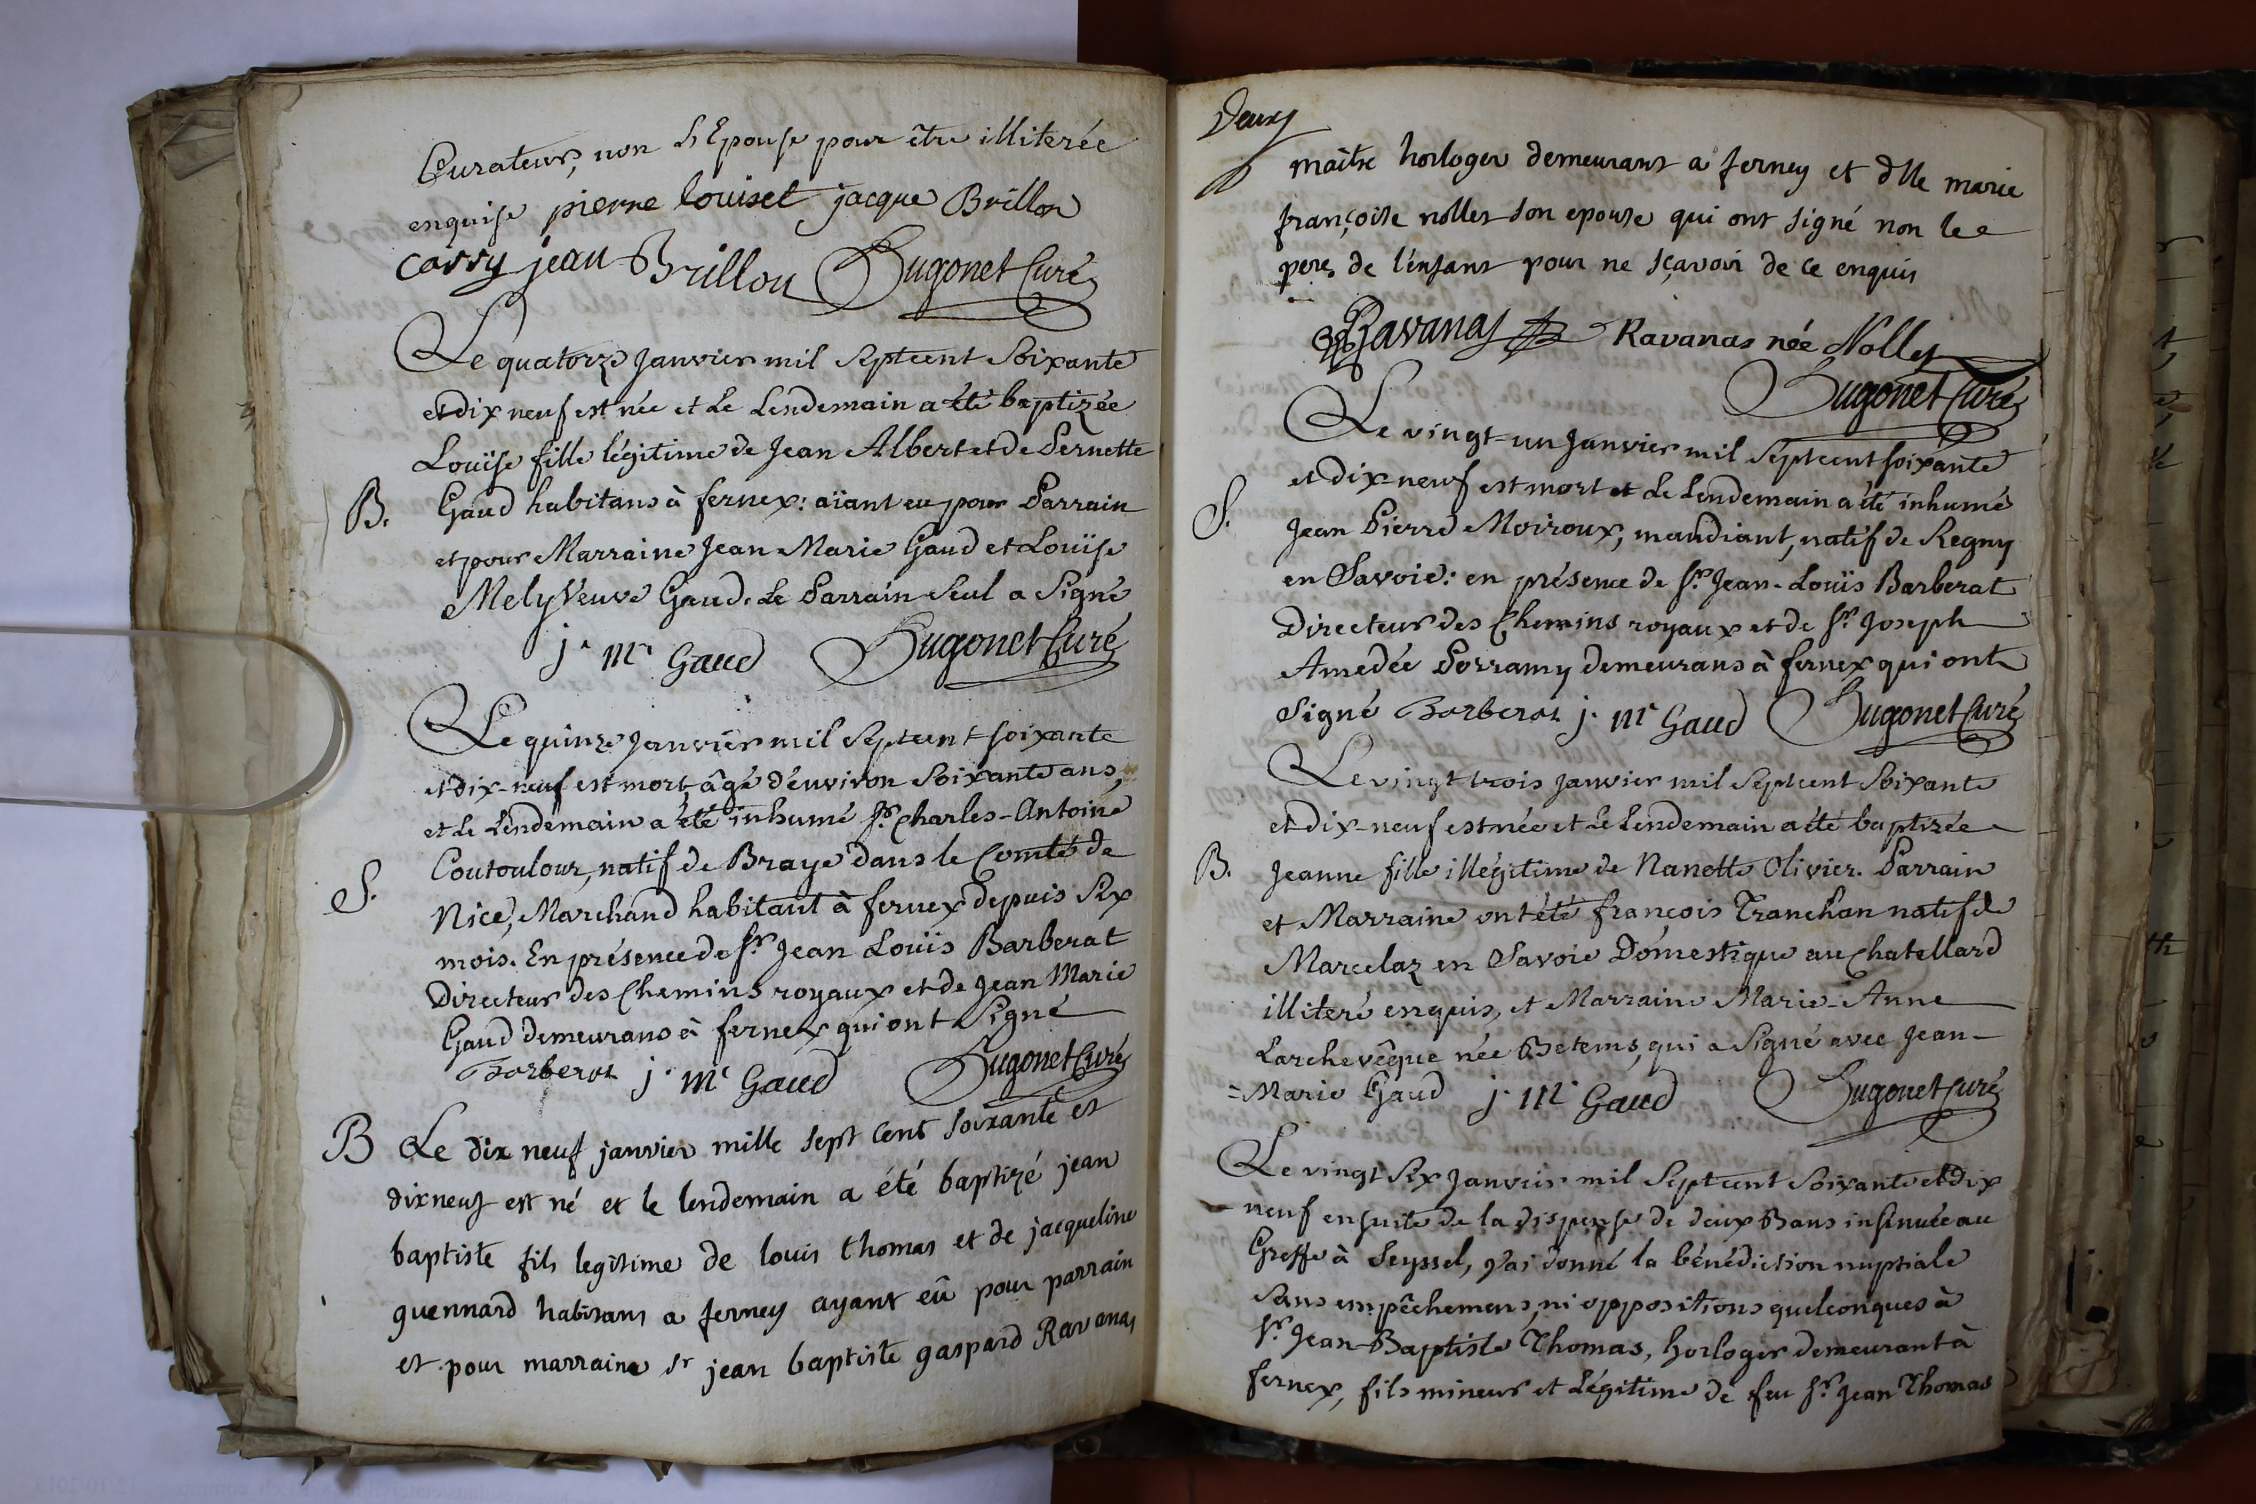 Curateur, non L'Epouse pour être illiterée
enquise pierre louiset jacque Brillon
cassy jean Brillon Hugonet Curé
Le quatorze Janvier mil Septcent Soixante
et dix neuf est née et Le Lendemain a été baptizée
Louïse fille légitime de Jean Albert et de Pernette
B. Gaud habitans à fernex: aïant eu pour Parrain
et pour Marraine Jean Marie Gaud et Louïse
Mely Veuve Gaud. Le Parrain Seul a Signé
j. m. Gaud Hugonet Curé
Le quinze Janvier mil Septcent soixante
et dix-neuf est mort âgé d'environ Soixante ans,
et Le Lendemain a été inhumé Sr. Charles-Antoine
S. Coutoulour, natif de Braye dans le Comté de
Nice, Marchand habitant à fernex depuis Six
mois. En présence de Sr. Jean Louïs Barberat
Directeur des Chemins royaux et de Jean Marie
Gaud demeurans à fernex qui ont Signé
Barberat j. m. Gaud Hugonet Curé
B Le dix neuf janvier mille sept cent soixante et
dixneuf est né et le lendemain a été baptizé jean
baptiste fils legitime de louis thomas et de jacqueline
guennard habitans a ferney ayant eû pour parrain
et pour marraine sr jean baptiste gaspard Ravanas
Deux
maître horloger demeurant a ferney et dlle marie
françoise nolley son epouse qui ont signé non le
pere de l'enfant pour ne sçavoir de ce enquis
Ravanas Ravanas née Nolley
Hugonet Curé
Le vingt-un Janvier mil Septcent soixante
et dix-neuf est mort et Le Lendemain a été inhumé
S. Jean Pierre Moiroux, mandiant, natif de Regny
en Savoie: en présence de Sr. Jean-Louïs Barberat
Directeur des Chemins royaux et de Sr. Joseph
Amedée Porramy demeurans à fernex qui ont
Signé Barberat j. m. Gaud Hugonet Curé
Le vingt trois Janvier mil Septcent Soixante
et dix-neuf est née et Le Lendemain a été baptizée
B. Jeanne fille illégitime de Nanette Olivier. Parrain
et Marraine ont été françois Tranchan natif de
Marcelaz en Savoie Domestique au Chatellard
illiteré enquis, et Marraine Marie-Anne
Larchevêque née Betems, qui a Signé avec Jean-
=Marie Gaud j. m. Gaud Hugonet Curé
Le vingt Six Janvier mil Septcent Soixante et dix
neuf ensuite de la dispense de deux Bans insinuée au
Greffe à Seyssel, j'ai donné la bénédiction nuptiale
Sans empêchemens, ni oppositions quelconques à
Sr. Jean-Baptiste Thomas, horloger demeurant à
fernex, fils mineur et Légitime de feu Sr. Jean Thomas